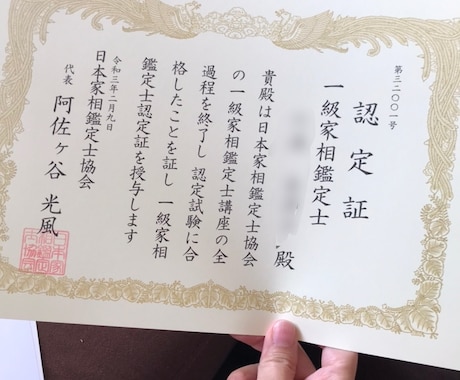 第三二〇〇一号
認定証
一級家相鑑定士
殿
貴殿は日本家相鑑定士協会
の一級家相鑑定士講座の全
過程を終了し 認定試験に合
格したことを証し 一級家相
鑑定士認定証を授与します
令和三年二月九日
日本家相鑑定士協会
代表 阿佐ヶ谷 光風